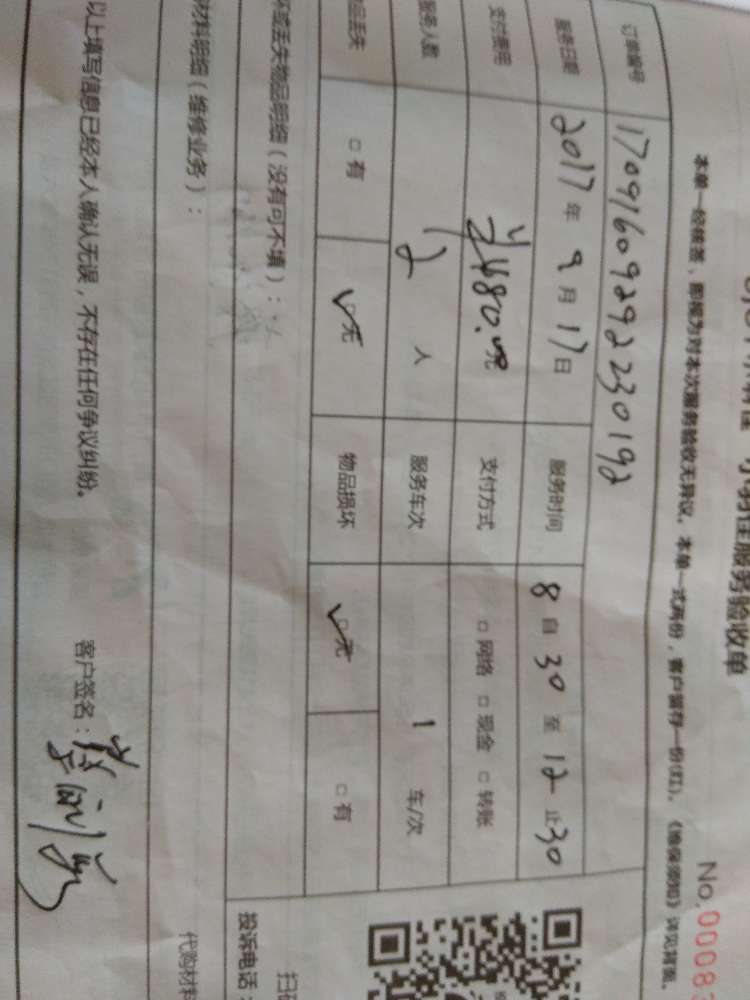 服务验收单
No.0008
本单一经接签，即视为对本次服务验收无异议。本单一式两份，客户留存一份(红)。《维保须知》详见背面。
订单编号 170916092922230192
服务日期 2017年9月17日 服务时间 8自30至12止30
支付费用 480.00元 支付方式 □网络 □现金 □转账
服务人数 2人 服务车次 1车/次
品丢失 □有 ☑无 物品损坏 ☑无 □有
坏或丢失物品明细（没有可不填）：
材料明细（维修业务）：
扫
投诉电话：
代购材料
以上填写信息已经本人确认无误，不存在任何争议纠纷。
客户签名：